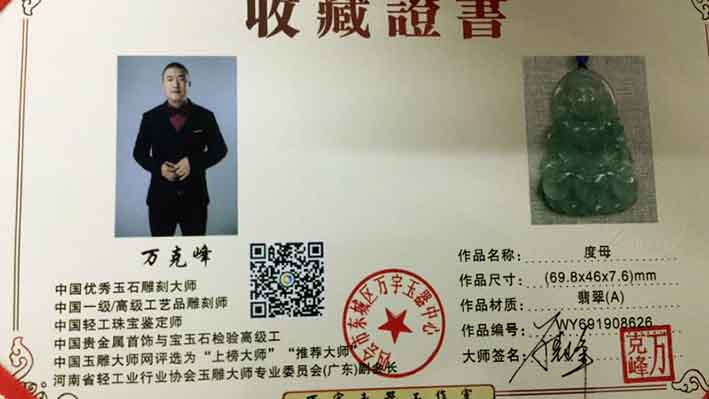 收藏證書
万克峰
中国优秀玉石雕刻大师
中国一级/高级工艺品雕刻师
中国轻工珠宝鉴定师
中国贵金属首饰与宝玉石检验高级工
中国玉雕大师网评选为“上榜大师”“推荐大师”
河南省轻工业行业协会玉雕大师专业委员会(广东)副会长
作品名称： 度母
作品尺寸： (69.8x46x7.6)mm
作品材质： 翡翠(A)
作品编号： WY691908626
大师签名：
万克峰
市东城区万字玉器中心